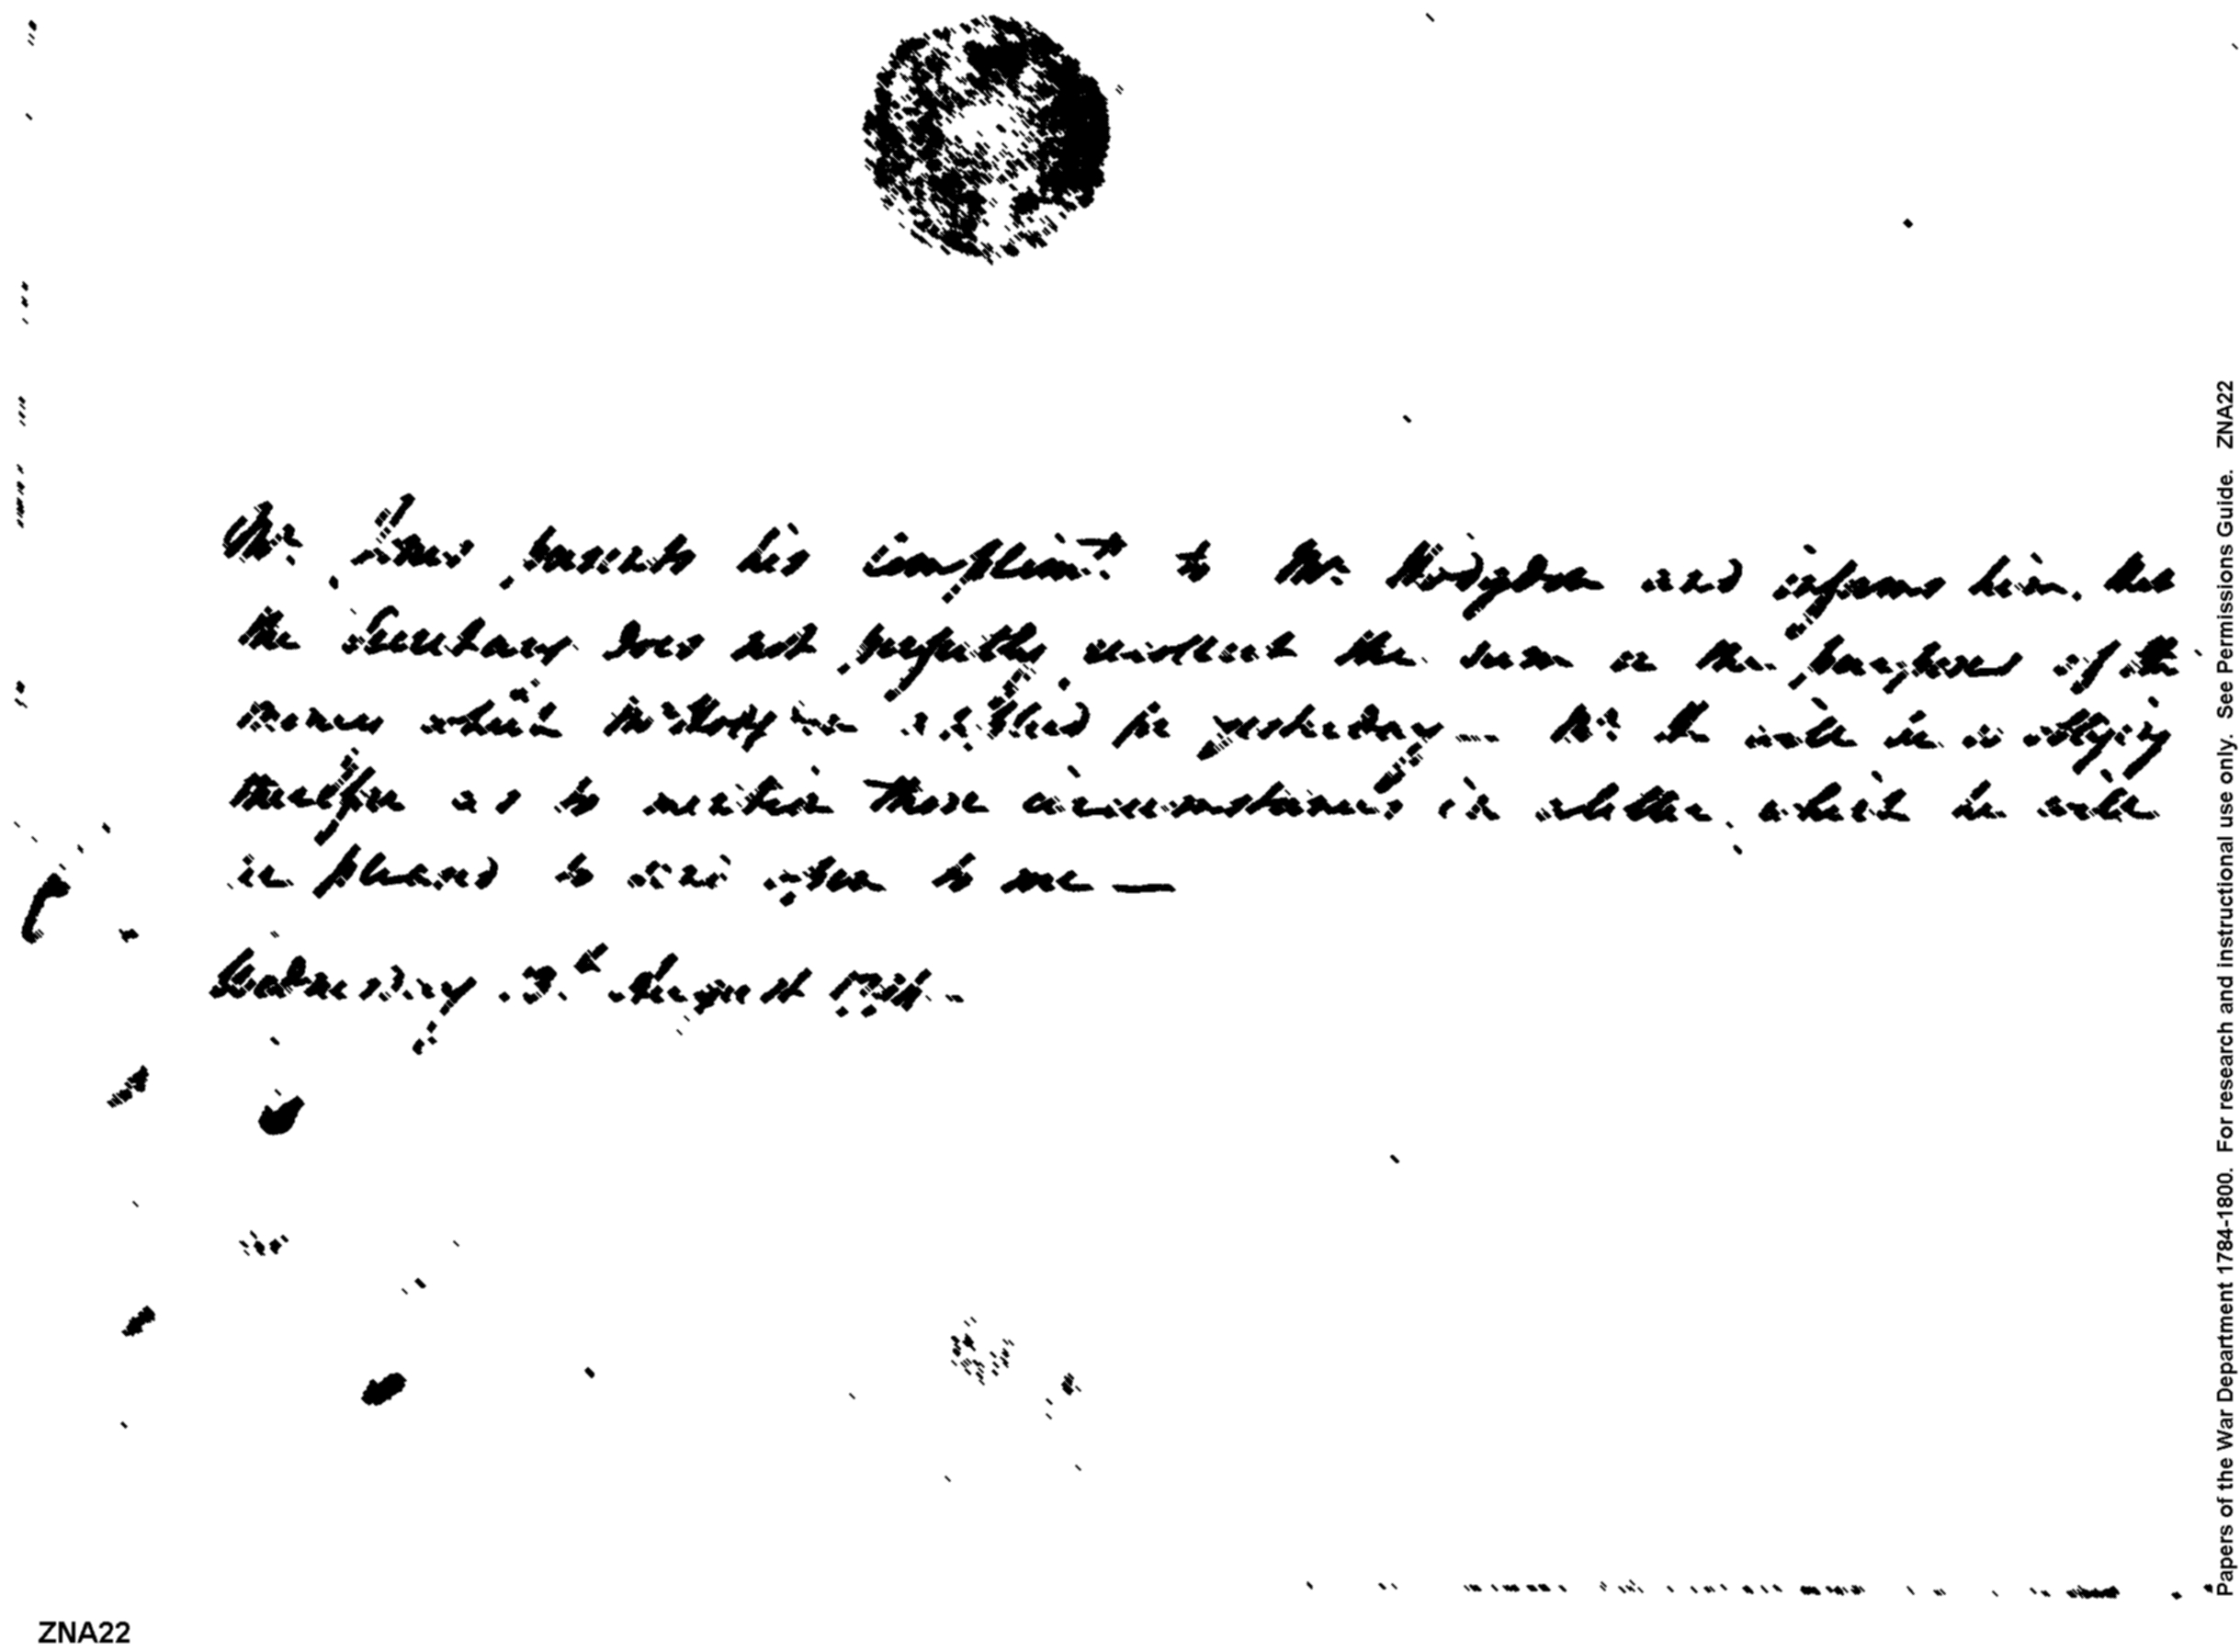 Mr. presents his complimts to Mr and informs him, that
the Secretary does not perfectly recollect the sum or the purposes of the
money which applied for yesterday — Mr he will be so obliging
therefore as to mention these circumstances in a letter, which he will
be pleased to send to me —
Wednesday 3d August 17
ZNA22
Papers of the War Department 1784-1800. For research and instructional use only. See Permissions Guide. ZNA22